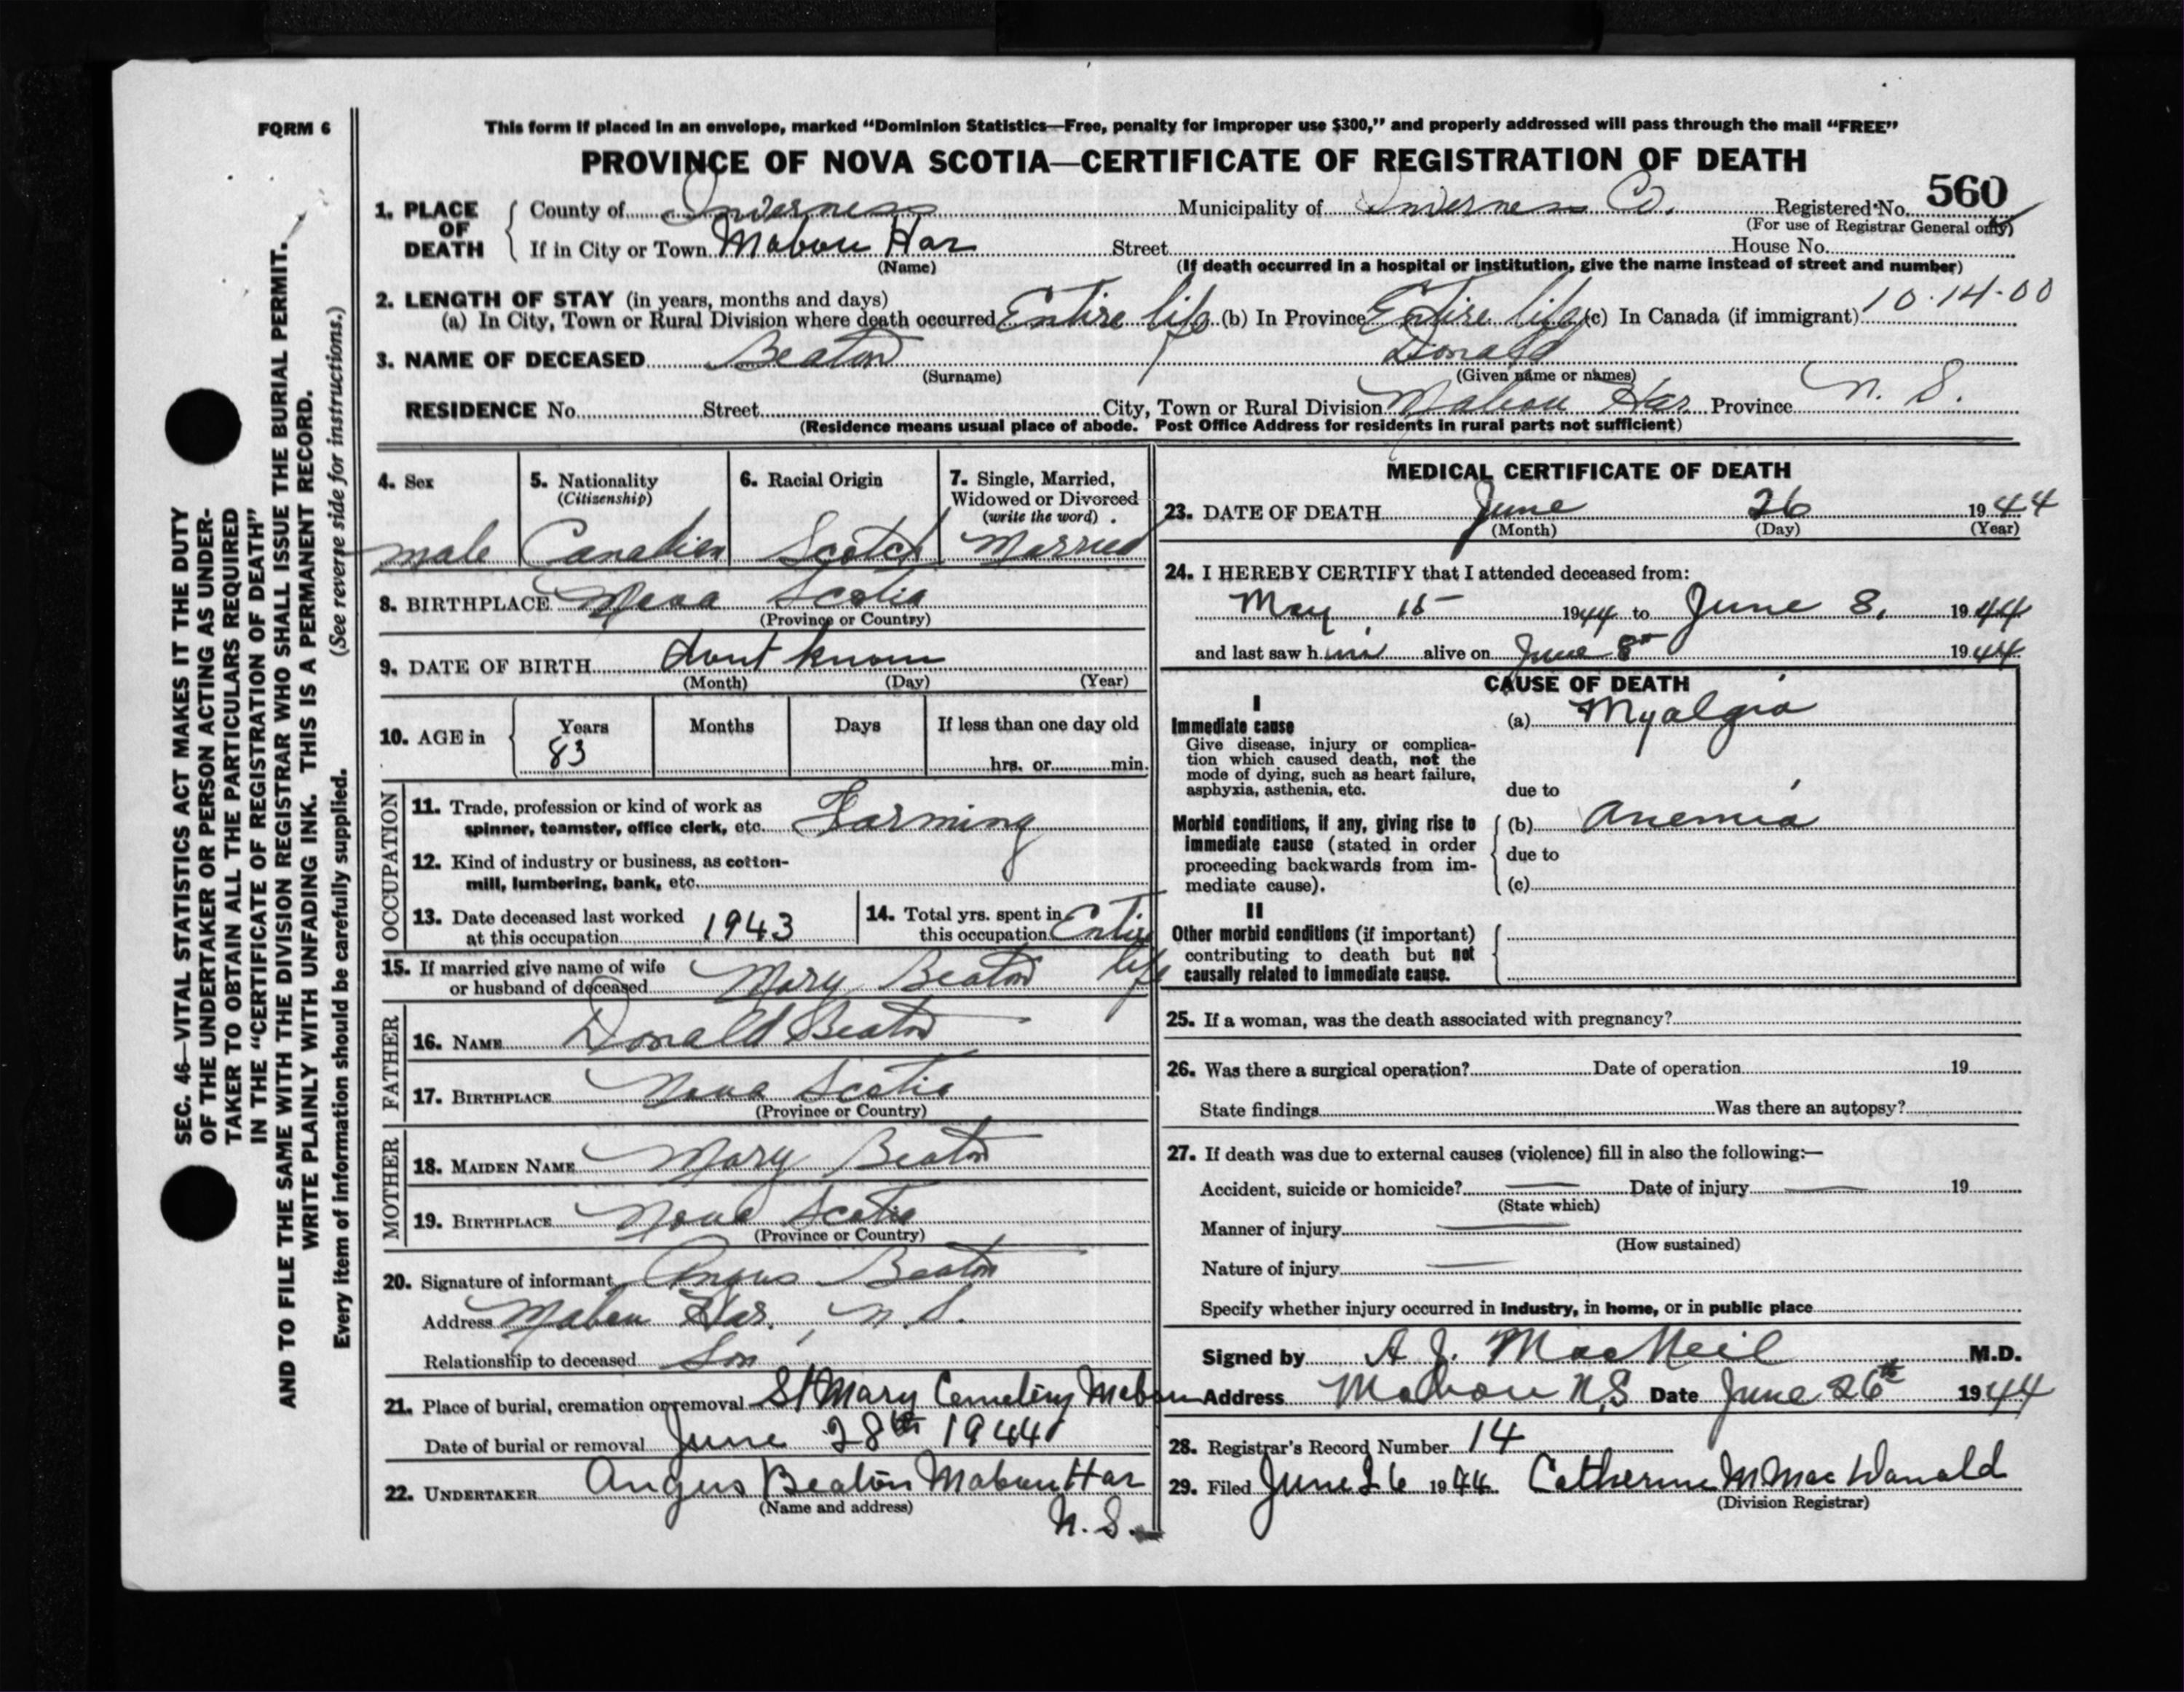 FORM 6
This form if placed in an envelope, marked "Dominion Statistics—Free, penalty for improper use $300," and properly addressed will pass through the mail "FREE"
PROVINCE OF NOVA SCOTIA—CERTIFICATE OF REGISTRATION OF DEATH
560
1. PLACE OF DEATH
County of Inverness Municipality of Inverness Co. Registered No.
(For use of Registrar General only)
If in City or Town Mabou Har Street House No.
(Name) (If death occurred in a hospital or institution, give the name instead of street and number)
2. LENGTH OF STAY (in years, months and days)
10-14-00
(a) In City, Town or Rural Division where death occurred Entire life (b) In Province Entire life (c) In Canada (if immigrant)
3. NAME OF DECEASED Beaton Donald
(Surname) (Given name or names)
RESIDENCE No. Street City, Town or Rural Division Mabou Har Province N. S.
(Residence means usual place of abode. Post Office Address for residents in rural parts not sufficient)
4. Sex
male
5. Nationality
(Citizenship)
Canadien
6. Racial Origin
Scotch
7. Single, Married,
Widowed or Divorced
(write the word)
Married
8. BIRTHPLACE Nova Scotia
(Province or Country)
9. DATE OF BIRTH dont know
(Month) (Day) (Year)
10. AGE in Years Months Days If less than one day old
83 hrs. or min.
OCCUPATION
11. Trade, profession or kind of work as
spinner, teamster, office clerk, etc. Farming
12. Kind of industry or business, as cotton-
mill, lumbering, bank, etc.
13. Date deceased last worked
at this occupation 1943
14. Total yrs. spent in
this occupation Entire
life
15. If married give name of wife
or husband of deceased Mary Beaton
FATHER
16. NAME Donald Beaton
17. BIRTHPLACE Nova Scotia
(Province or Country)
MOTHER
18. MAIDEN NAME Mary Beaton
19. BIRTHPLACE Nova Scotia
(Province or Country)
20. Signature of informant Angus Beaton
Address Mabou Har. N. S.
Relationship to deceased Son
21. Place of burial, cremation or removal St Mary Cemetery Mabou
Date of burial or removal June 28th 1944
22. UNDERTAKER Angus Beaton Mabou Har
(Name and address)
N. S.
MEDICAL CERTIFICATE OF DEATH
23. DATE OF DEATH June 26 1944
(Month) (Day) (Year)
24. I HEREBY CERTIFY that I attended deceased from:
May 15 1944 to June 8, 1944
and last saw him alive on June 8th 1944
CAUSE OF DEATH
I
Immediate cause (a) Myalgia
Give disease, injury or complica-
tion which caused death, not the
mode of dying, such as heart failure,
asphyxia, asthenia, etc. due to
Morbid conditions, if any, giving rise to (b) Anemia
immediate cause (stated in order
proceeding backwards from im- due to
mediate cause). (c)
II
Other morbid conditions (if important)
contributing to death but not
causally related to immediate cause.
25. If a woman, was the death associated with pregnancy?
26. Was there a surgical operation? Date of operation 19
State findings Was there an autopsy?
27. If death was due to external causes (violence) fill in also the following:—
Accident, suicide or homicide? Date of injury 19
(State which)
Manner of injury
(How sustained)
Nature of injury
Specify whether injury occurred in industry, in home, or in public place
Signed by A J. MacNeil M.D.
Address Mabou N.S Date June 26th 1944
28. Registrar's Record Number 14
29. Filed June 26 1944 Catherine M MacDonald
(Division Registrar)
SEC. 46—VITAL STATISTICS ACT MAKES IT THE DUTY
OF THE UNDERTAKER OR PERSON ACTING AS UNDER-
TAKER TO OBTAIN ALL THE PARTICULARS REQUIRED
IN THE "CERTIFICATE OF REGISTRATION OF DEATH"
AND TO FILE THE SAME WITH THE DIVISION REGISTRAR WHO SHALL ISSUE THE BURIAL PERMIT.
WRITE PLAINLY WITH UNFADING INK. THIS IS A PERMANENT RECORD.
Every item of information should be carefully supplied. (See reverse side for instructions.)